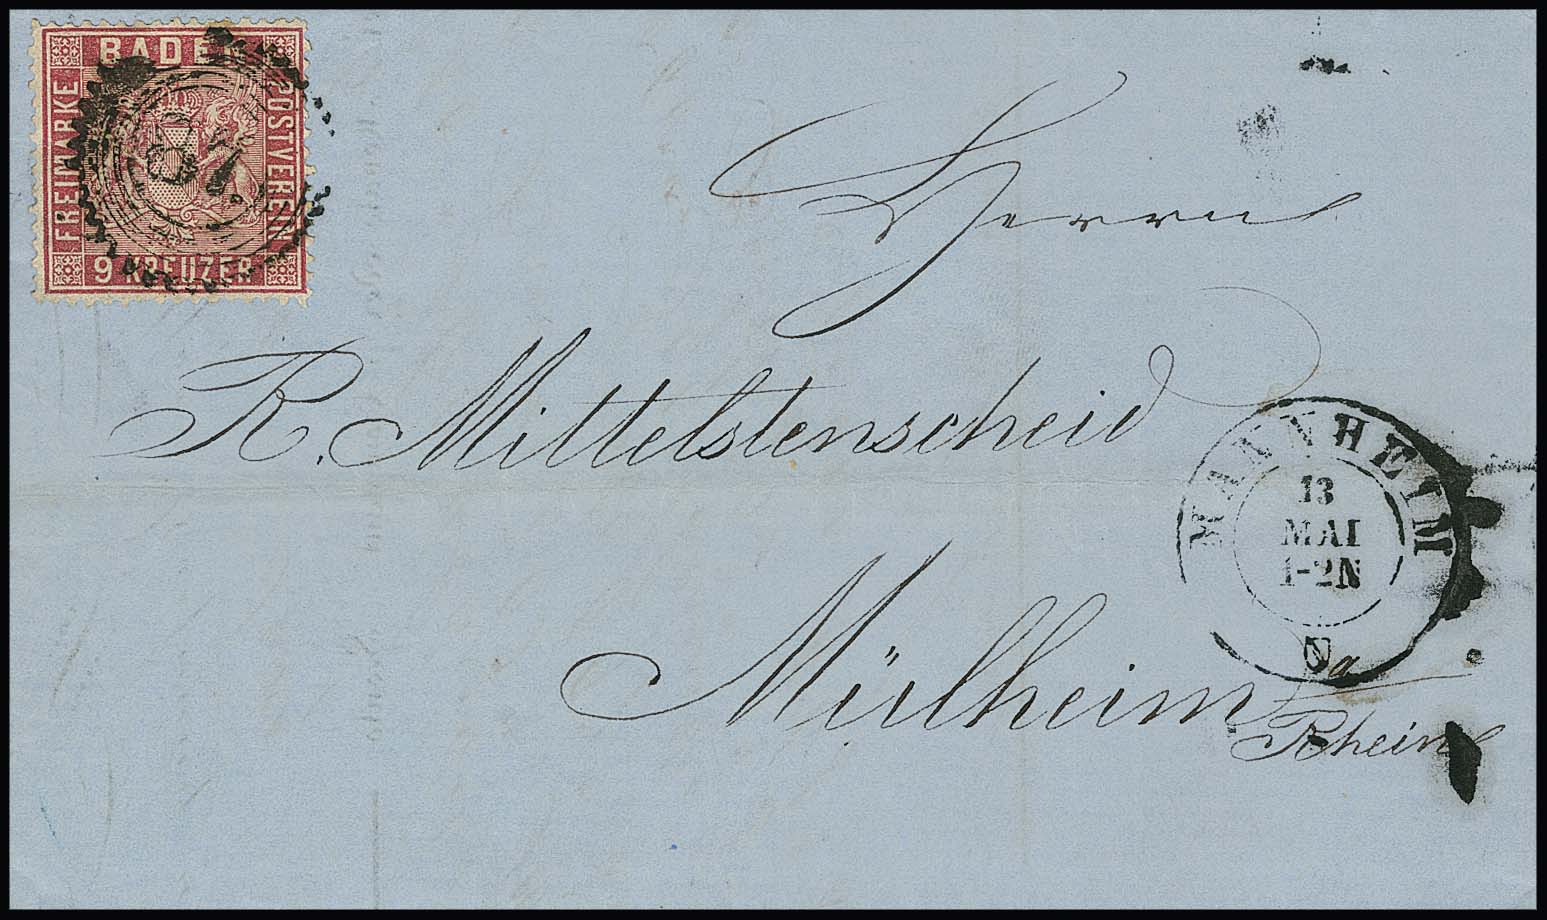 BADEN
FREIMARKE
POSTVEREIN
9 KREUZER
87.
Herrn
R. Mittelstenscheid
MANNHEIM
13
MAI
1-2N
Mülheim a
Rhein